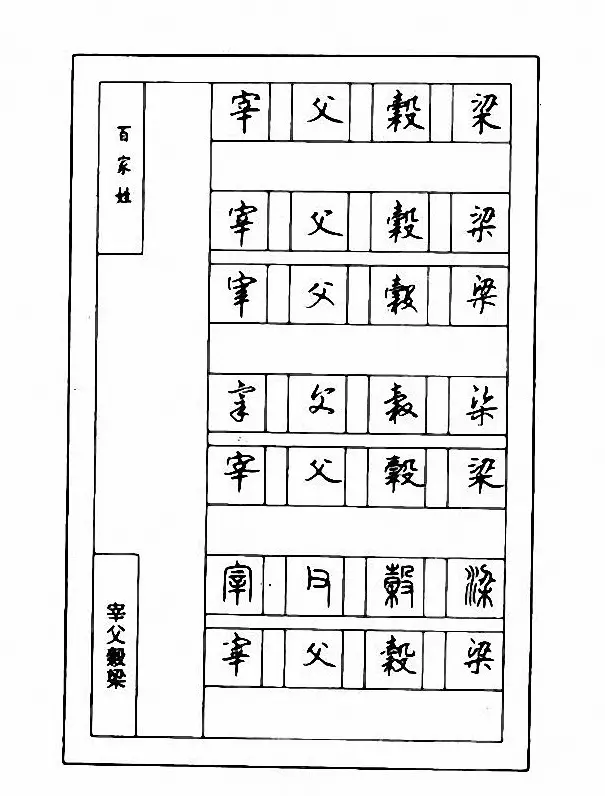 宰 父 穀 梁
宰 父 穀 梁
宰 父 穀 梁
宰 父 穀 梁
宰 父 穀 梁
宰 父 穀 梁
宰 父 穀 梁
百家姓
宰父穀梁